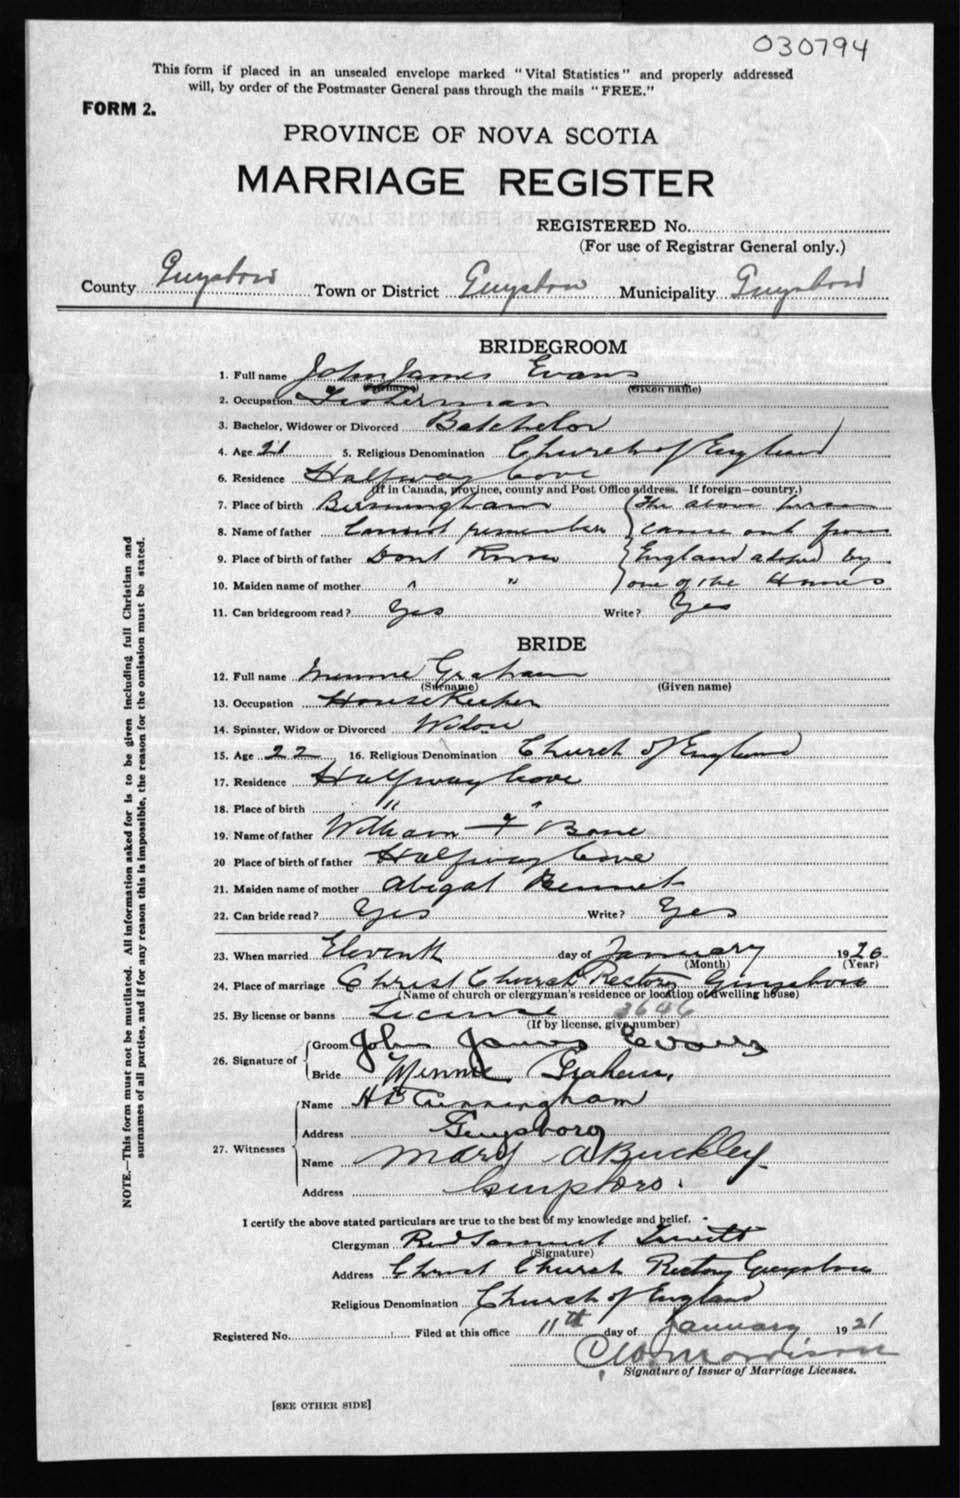 030794
This form if placed in an unsealed envelope marked "Vital Statistics" and properly addressed
will, by order of the Postmaster General pass through the mails "FREE."
FORM 2.
PROVINCE OF NOVA SCOTIA
MARRIAGE REGISTER
REGISTERED No.
(For use of Registrar General only.)
County Guysboro Town or District Guysboro Municipality Guysboro
BRIDEGROOM
1. Full name John James Evans
(Surname) (Given name)
2. Occupation Fisherman
3. Bachelor, Widower or Divorced Batchelor
4. Age 21 5. Religious Denomination Church of England
6. Residence Halfway Cove
(If in Canada, province, county and Post Office address. If foreign—country.)
7. Place of birth Birmingham The above person
8. Name of father Cannot remember came out from
9. Place of birth of father Dont Know England adopted by
10. Maiden name of mother " " one of the Homes
11. Can bridegroom read? Yes Write? Yes
BRIDE
12. Full name Minnie Graham
(Surname) (Given name)
13. Occupation HouseKeeper
14. Spinster, Widow or Divorced Widow
15. Age 22 16. Religious Denomination Church of England
17. Residence Halfway Cove
18. Place of birth " "
19. Name of father William F Bone
20 Place of birth of father Halfway Cove
21. Maiden name of mother Abigal Bennet
22. Can bride read? Yes Write? Yes
23. When married Eleventh day of January 1926
(Month) (Year)
24. Place of marriage Christ Church Rectory Guysboro
(Name of church or clergyman's residence or location of dwelling house)
25. By license or banns License 3646
(If by license, give number)
26. Signature of Groom John James Evans
Bride Minnie Graham.
27. Witnesses
Name H B Cunningham
Address Guysboro
Name Mary A Buckley
Address Guysboro.
I certify the above stated particulars are true to the best of my knowledge and belief.
Clergyman Rev Samuel
(Signature)
Address Christ Church Rectory Guysboro
Religious Denomination Church of England
Registered No. Filed at this office 11th day of January 1921
Morrison
Signature of Issuer of Marriage Licenses.
[SEE OTHER SIDE]
NOTE.—This form must not be mutilated. All information asked for is to be given including full Christian and
surnames of all parties, and if for any reason this is impossible, the reason for the omission must be stated.